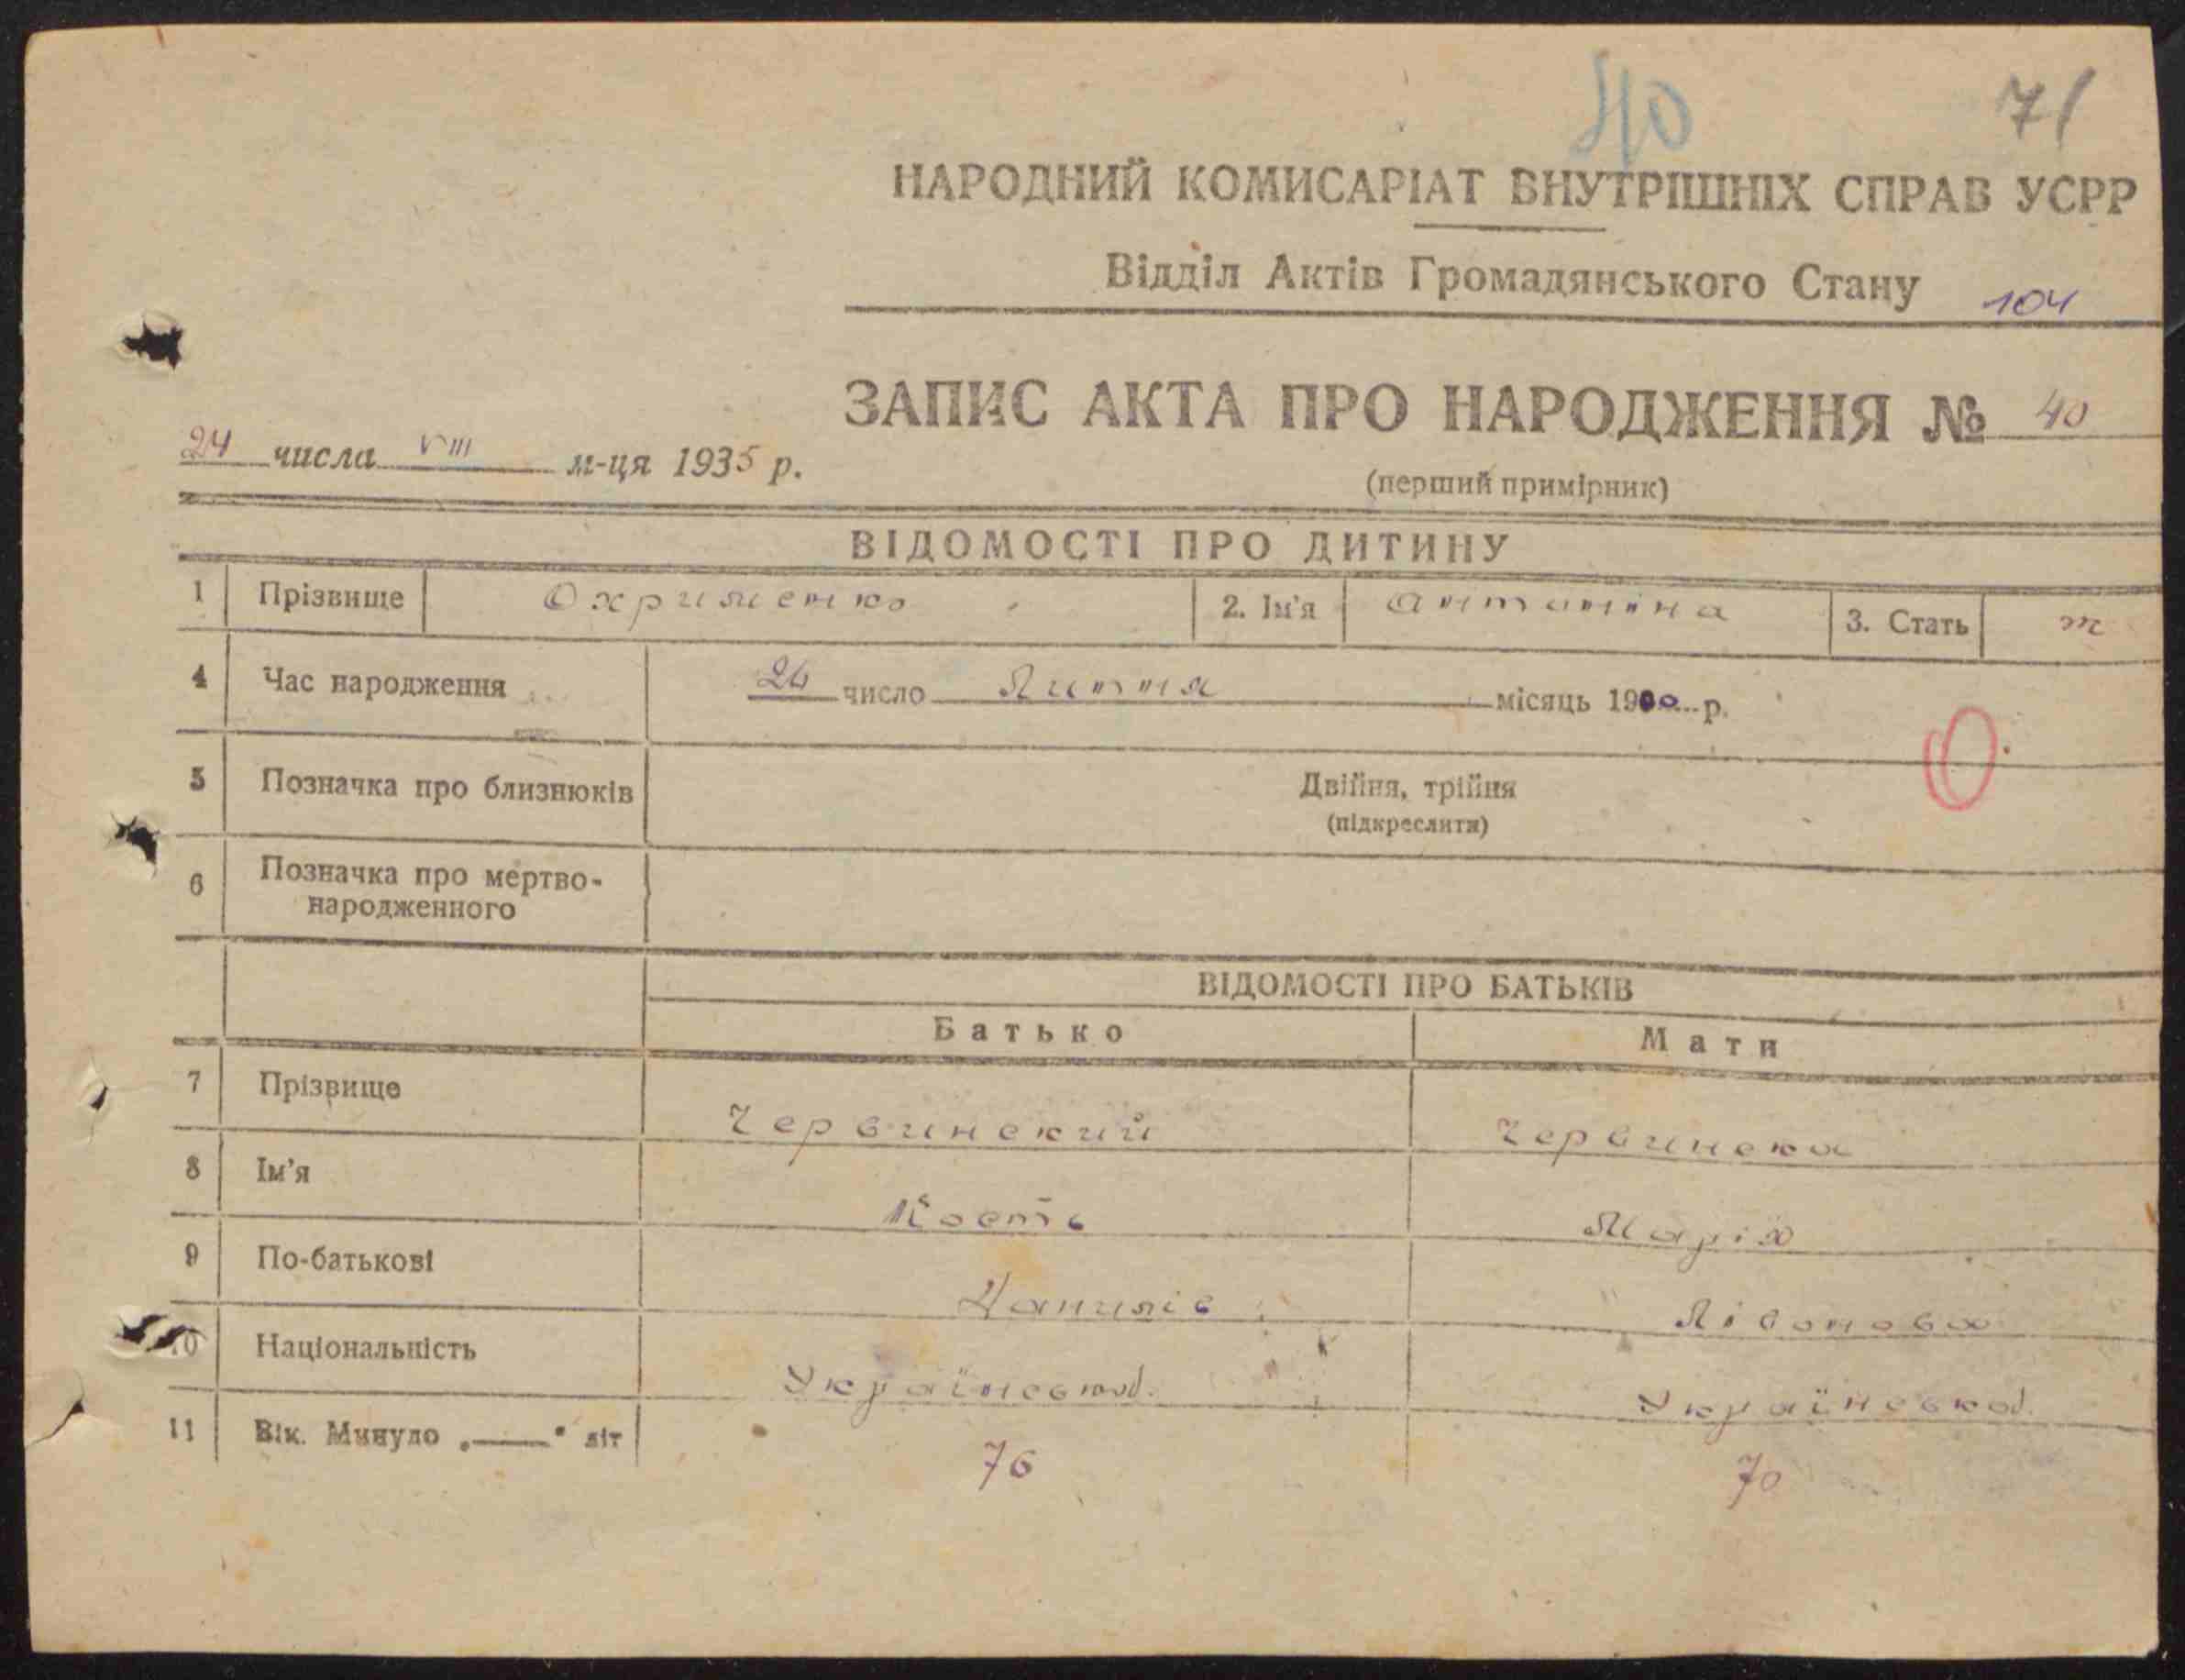 40 71
НАРОДНИЙ КОМИСАРІАТ ВНУТРІШНІХ СПРАВ УСРР
Відділ Актів Громадянського Стану 104
ЗАПИС АКТА ПРО НАРОДЖЕННЯ № 40
24 числа VIII м-ця 1935 р.
(перший примірник)
ВІДОМОСТІ ПРО ДИТИНУ
1 Прізвище Охрименко 2. Ім'я Антоніна 3. Стать
4 Час народження 24 число Липня місяць 1900 р.
5 Позначка про близнюків Двійня, трійня
(підкреслити)
6 Позначка про мертво-
народженного
ВІДОМОСТІ ПРО БАТЬКІВ
Батько Мати
7 Прізвище Червинский Червинска
8 Ім'я Кость Марія
9 По-батькові Данилів Лівонова
10 Національність Українськ. Українська.
11 Вік. Минуло „—" літ 76 70